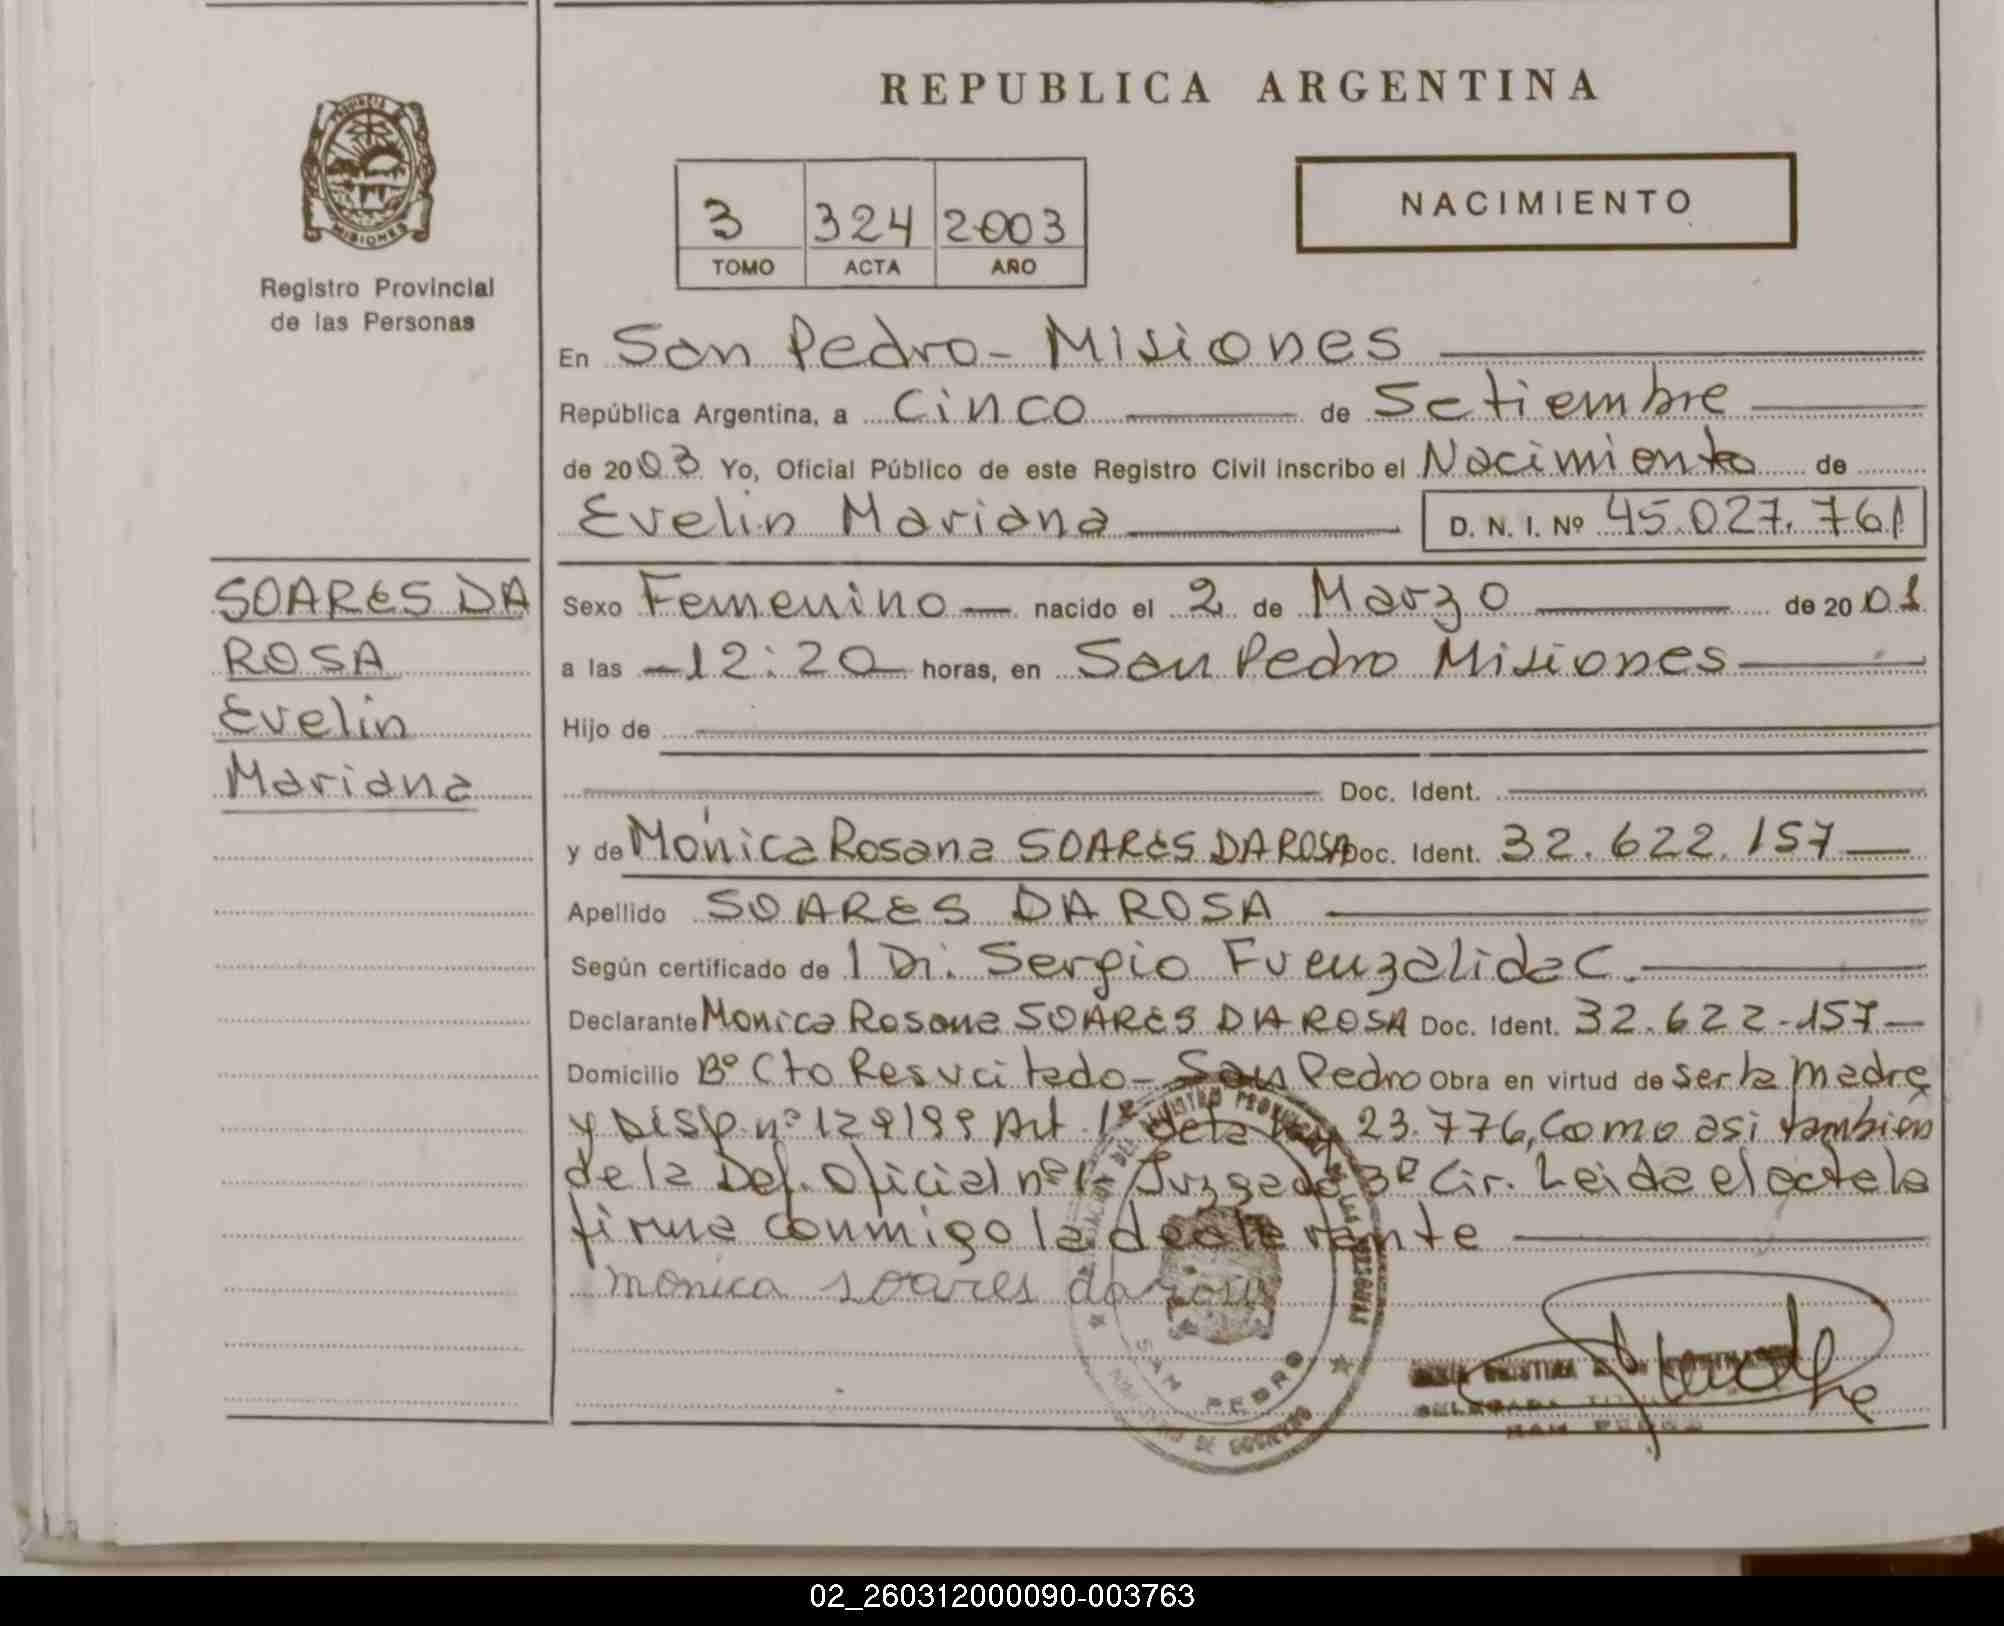 REPUBLICA ARGENTINA
PROVINCIA
MISIONES
Registro Provincial
de las Personas
3 324 2003
TOMO ACTA AÑO
NACIMIENTO
En San Pedro - Misiones
República Argentina, a Cinco de Setiembre
de 2003 Yo, Oficial Público de este Registro Civil inscribo el Nacimiento de
Evelin Mariana D. N. I. Nº 45.027.761
SOARES DA
ROSA
Evelin
Mariana
Sexo Femenino nacido el 2 de Marzo de 2001
a las 12:20 horas, en San Pedro Misiones
Hijo de
Doc. Ident.
y de Mónica Rosana SOARES DA ROSA Doc. Ident. 32.622.157
Apellido SOARES DA ROSA
Según certificado de Sergio Fuenzalida C.
Declarante Monica Rosana SOARES DA ROSA Doc. Ident. 32.622-157
Domicilio Bº Cto Resucitado - San Pedro Obra en virtud de ser la madre
y Disp. nº 129/99 Art. 1º de la Ley 23.776, como asi tambien
de la Def. Oficial nº 1 Juzgado 3º Cir. Leida el acta la
firma conmigo la declarante
monica soares da rosa
SAN PEDRO
CRISTINA
DELEGADA
SAN PEDRO
02_260312000090-003763